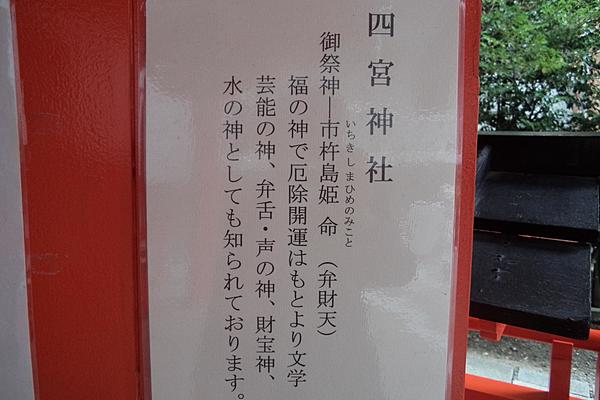 四宮神社
御祭神―市杵島姫命（弁財天）
いちきしまひめのみこと
福の神で厄除開運はもとより文学
芸能の神、弁舌・声の神、財宝神、
水の神としても知られております。